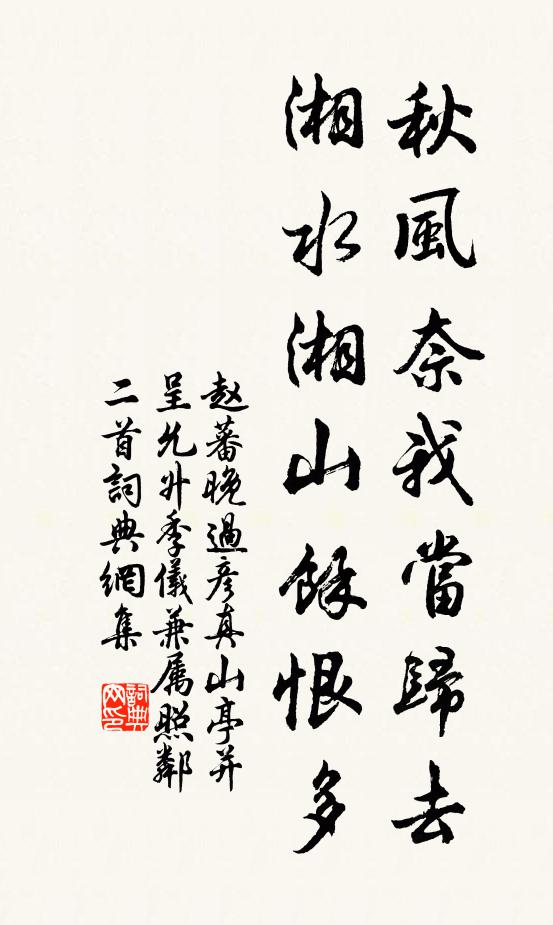 秋風奈我當歸去
湘水湘山餘恨多
赵蕃晚過彦真山亭并
呈允升季儀兼属照鄰
二首詞典網集
詞典网印